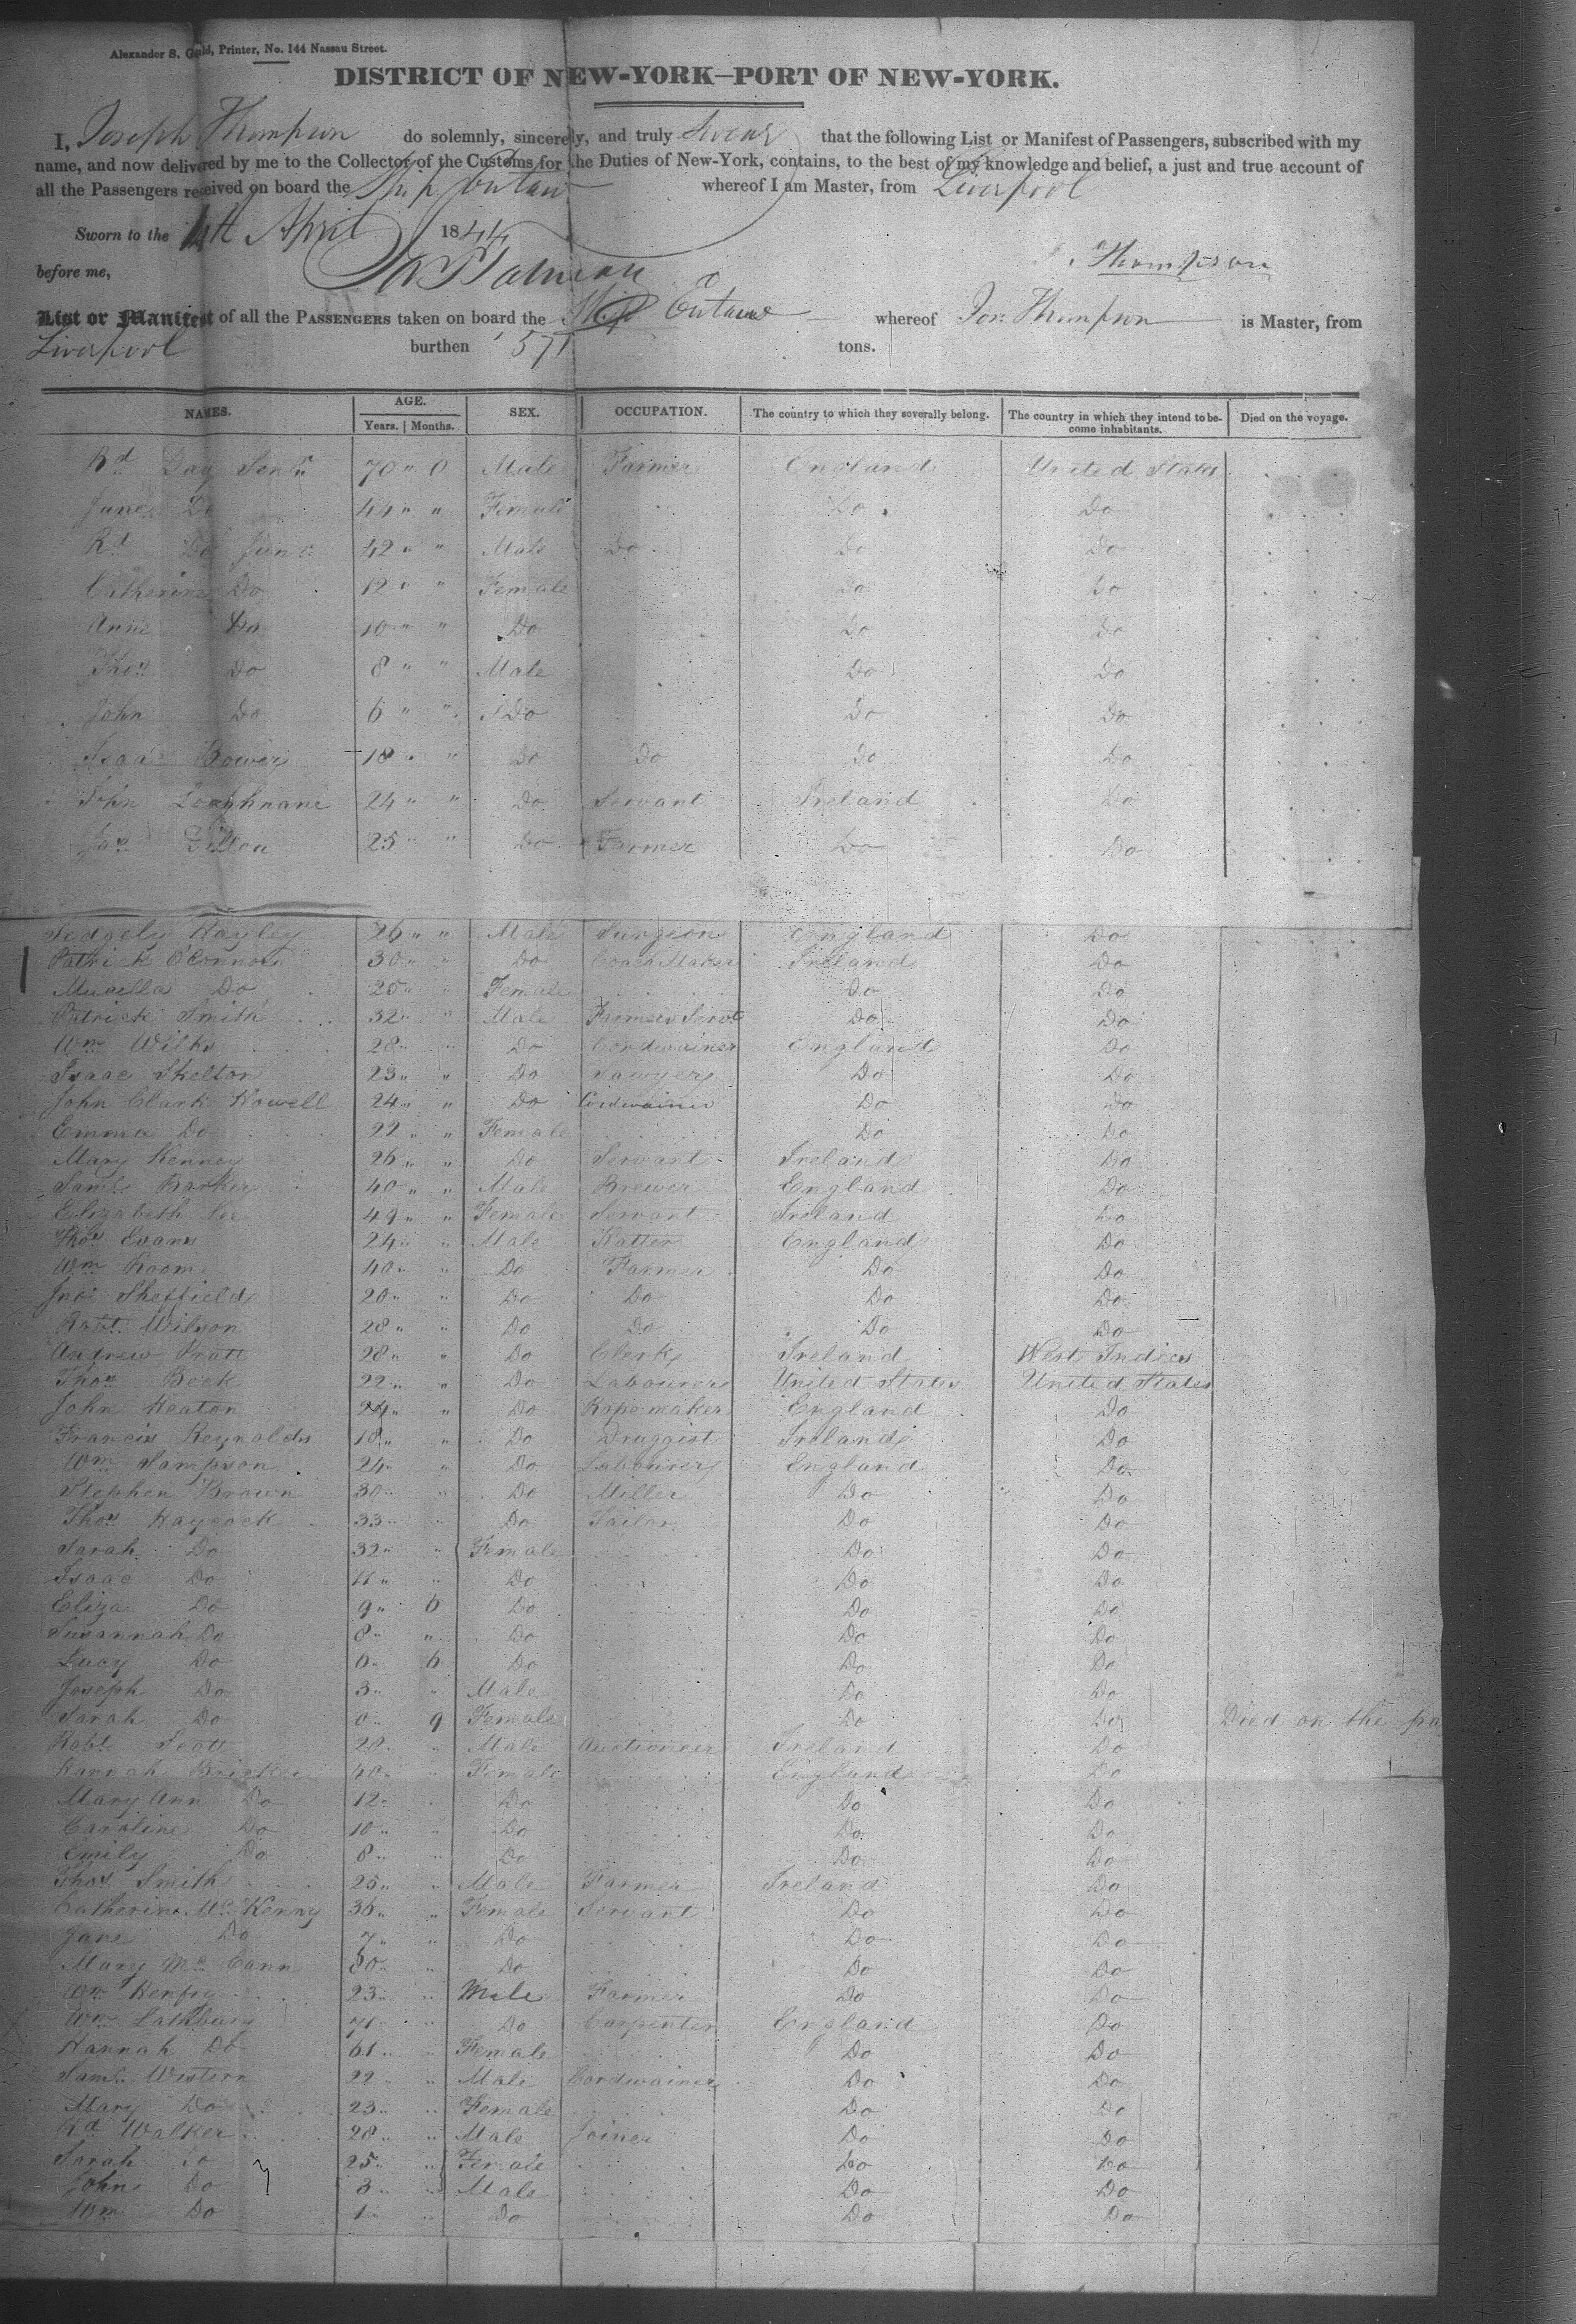 Alexander S. Gould, Printer, No. 144 Nassau Street.
DISTRICT OF NEW-YORK—PORT OF NEW-YORK.
I, Joseph Thompson do solemnly, sincerely, and truly swear that the following List or Manifest of Passengers, subscribed with my
name, and now delivered by me to the Collector of the Customs for the Duties of New-York, contains, to the best of my knowledge and belief, a just and true account of
all the Passengers received on board the Ship Eutaw whereof I am Master, from Liverpool
Sworn to the 4th April 1844
before me, J. Thompson
List or Manifest of all the PASSENGERS taken on board the Ship Eutaw whereof Jos: Thompson is Master, from
Liverpool burthen 571 tons.
NAMES. AGE. SEX. OCCUPATION. The country to which they severally belong. The country in which they intend to become inhabitants. Died on the voyage.
Years. Months.
Rd Day Senr 70 " 0 Male Farmer England United States
Jane Do 44 " " Female Do Do
Rd Do Junr 42 " " Male Do Do Do
Catherine Do 12 " " Female Do Do
Anne Do 10 " " Do Do Do
Thos Do 8 " " Male Do Do
John Do 6 " " Do Do Do
Isaac Bowers 18 " " Do Do Do Do
John Loughnane 24 " " Do Servant Ireland Do
Jas 25 " " Do Farmer Do Do
Sedgely Hayley 26 " " Male Surgeon England Do
Patrick O'Connor 30 " " Do Coach Maker Ireland Do
Do 25 " " Female Do Do
Patrick Smith 32 " " Male Farmers Servt Do Do
Wm Wilks 28 " " Do Cordwainer England Do
Isaac Skelton 23 " " Do Sawyer Do Do
John Clark Howell 24 " " Do Cordwainer Do Do
Emma Do 22 " " Female Do Do
Mary Kenney 26 " " Do Servant Ireland Do
Saml Barker 40 " " Male Brewer England Do
Elizabeth Lee 49 " " Female Servant Ireland Do
Thos Evans 24 " " Male Hatter England Do
Wm Room 40 " " Do Farmer Do Do
Jno Sheffield 20 " " Do Do Do Do
Robt Wilson 28 " " Do Do Do Do
Andrew Pratt 28 " " Do Clerk Ireland West Indies
Thos Beck 22 " " Do Labourer United States United States
John Heaton 24 " " Do Ropemaker England Do
Francis Reynolds 18 " " Do Druggist Ireland Do
Wm Sampson 24 " " Do Labourer England Do
Stephen Brown 30 " " Do Miller Do Do
Thos Haycock 33 " " Do Tailor Do Do
Sarah Do 32 " " Female Do Do
Isaac Do 11 " " Do Do Do
Eliza Do 9 " 6 Do Do Do
Susannah Do 8 " " Do Do Do
Lucy Do 6 " 6 Do Do Do
Joseph Do 3 " " Male Do Do
Sarah Do 0 " 9 Female Do Do Died on the pa
Robt Scott 28 " " Male Auctioneer Ireland Do
Hannah 40 " " Female England Do
Mary Ann Do 12 " " Do Do Do
Caroline Do 10 " " Do Do Do
Emily Do 8 " " Do Do Do
Thos Smith 25 " " Male Farmer Ireland Do
Catherine McKenny 36 " " Female Servant Do Do
Jane Do 7 " " Do Do Do
Mary McCann 80 " " Do Do Do
Wm Henfry 23 " " Male Farmer Do Do
Wm Lathbury 71 " " Do Carpenter England Do
Hannah Do 61 " " Female Do Do
Saml Western 22 " " Male Cordwainer Do Do
Mary Do 23 " " Female Do Do
Rd Walker 28 " " Male Joiner Do Do
Sarah Do 25 " " Female Do Do
John Do 3 " " Male Do Do
Wm Do 1 " " Do Do Do